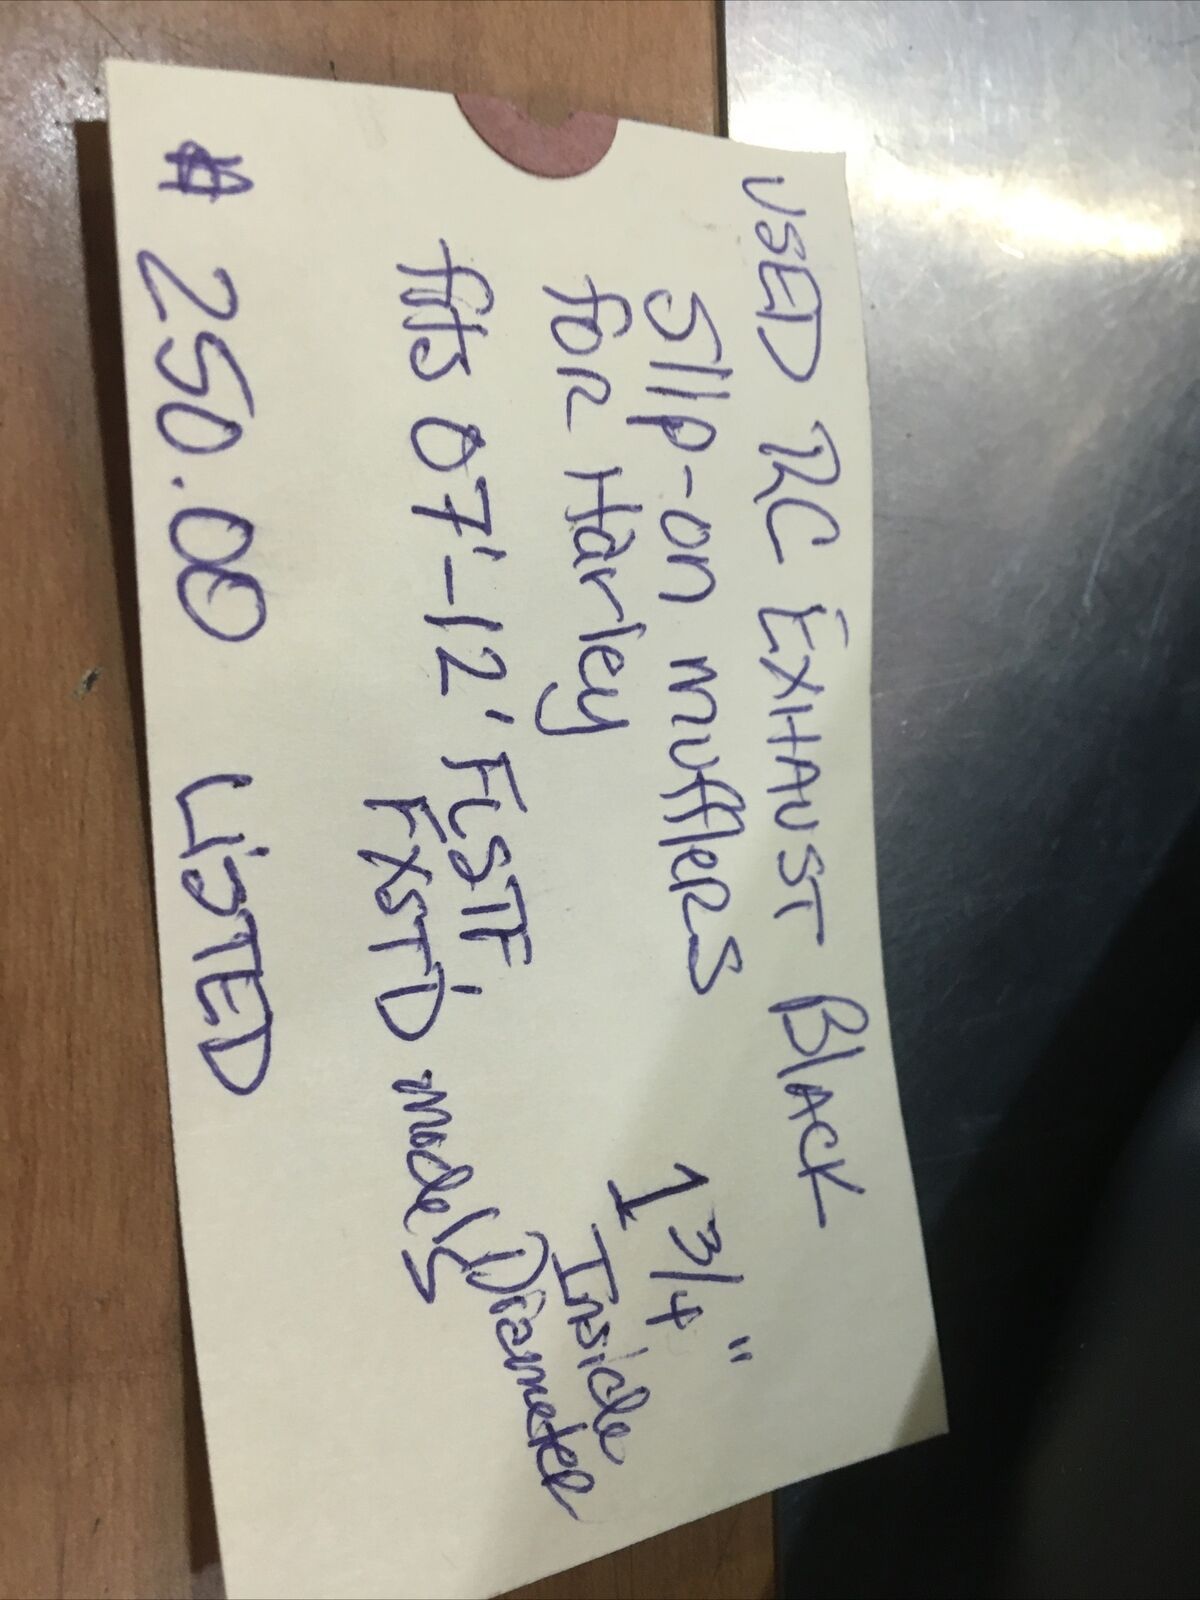 USED RC EXHAUST BLACK
Slip-on mufflERS
foR Harley
1 3/4"
Inside
Diameter
fits 07'-12' FLSTF
FXSTD models
# 250.00 LiSTED